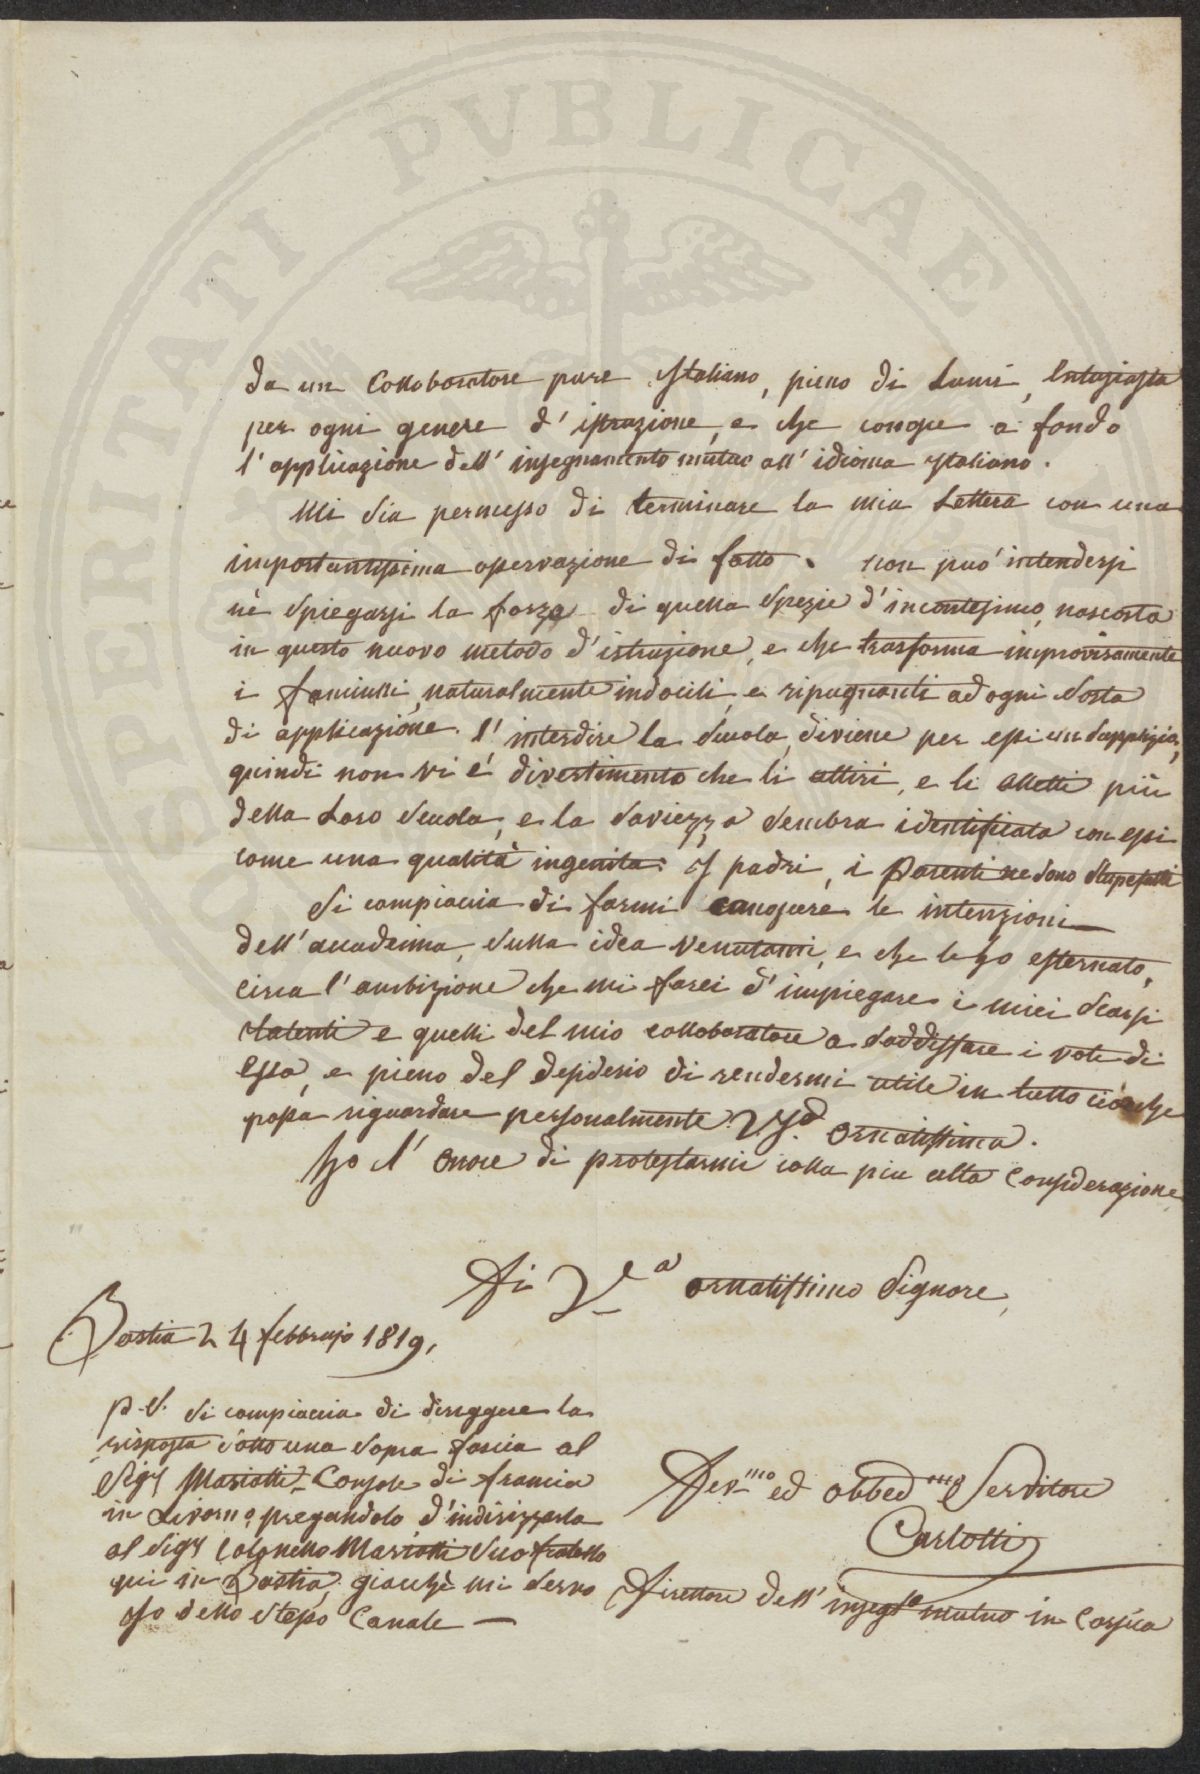 PROSPERITATI PUBLICAE
da un Collaboratore pure Italiano, pieno di Lumi, Entusiasta
per ogni genere d'istruzione, e che conosce a fondo
l'applicazione dell'insegnamento mutuo all'idioma Italiano.
Mi sia permesso di terminare la mia Lettera con una
importantissima osservazione di fatto. non può intendersi
nè spiegarsi la forza di quella spezie d'incantesimo, nascosta
in questo nuovo metodo d'istruzione, e che trasforma improvisamente
i fanciulli, naturalmente indocili, e ripugnanti ad ogni sorta
di applicazione. l'interdire la Scuola, diviene per essi un supplizio,
quindi non vi e' divertimento che li attiri, e li alletti più
della Loro Scuola, e la saviezza sembra identificata con essi
come una qualità ingenita. I padri, i Parenti ne sono stupefatti
Si compiaccia di farmi conoscere le intenzioni
dell'accademia, sulla idea venutami, e che le ho esternato,
circa l'ambizione che mi farei d'impiegare i miei scarsi
talenti e quelli del mio collaboratore a soddisfare i voti di
Essa, e pieno del desiderio di rendermi utile in tutto ciò che
possa riguardare personalmente V.S. Ornatissima.
Ho l'onore di protestarmi colla più alta Considerazione
Di V.a ornatissimo Signore,
Bastia 24 febbrajo 1819,
P.S. Si compiaccia di diriggere la
risposta sotto una sopra fascia al
Sigr Mariotti Console di francia
in Livorno, pregandolo d'indirizzarla
al Sigr Colonello Mariotti suo fratello
qui in Bastia, giacchè mi servo
Io dello stesso Canale —
Dev.mo ed obbed.mo Servitore
Carlotti
Direttore dell'insegto mutuo in Corsica